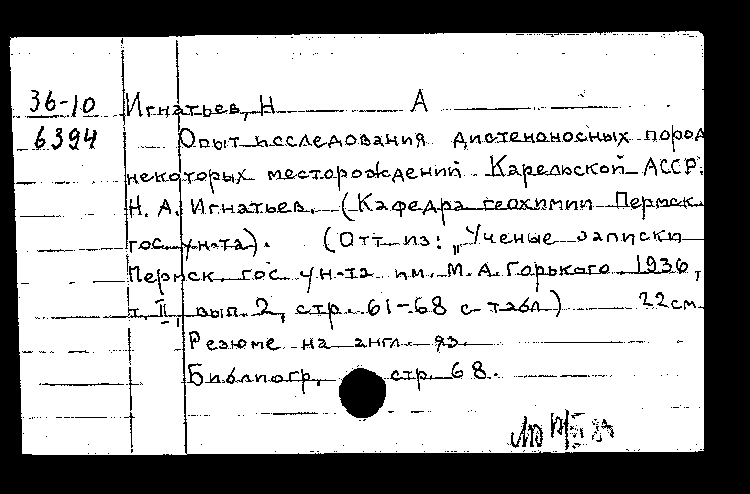 36-10 Игнатьев, Н А
6394 Опыт исследования дистеноносных пород
некоторых месторождений Карельской АССР.
Н. А. Игнатьев. (Кафедра геохимии Пермск.
гос. ун-та). (Отт из: „Ученые записки
Пермск. гос. ун-та им. М. А. Горького 1936,
т. II, вып. 2, стр. 61-68 с табл.) 22см
Резюме на англ. яз.
Библиогр. стр. 68.